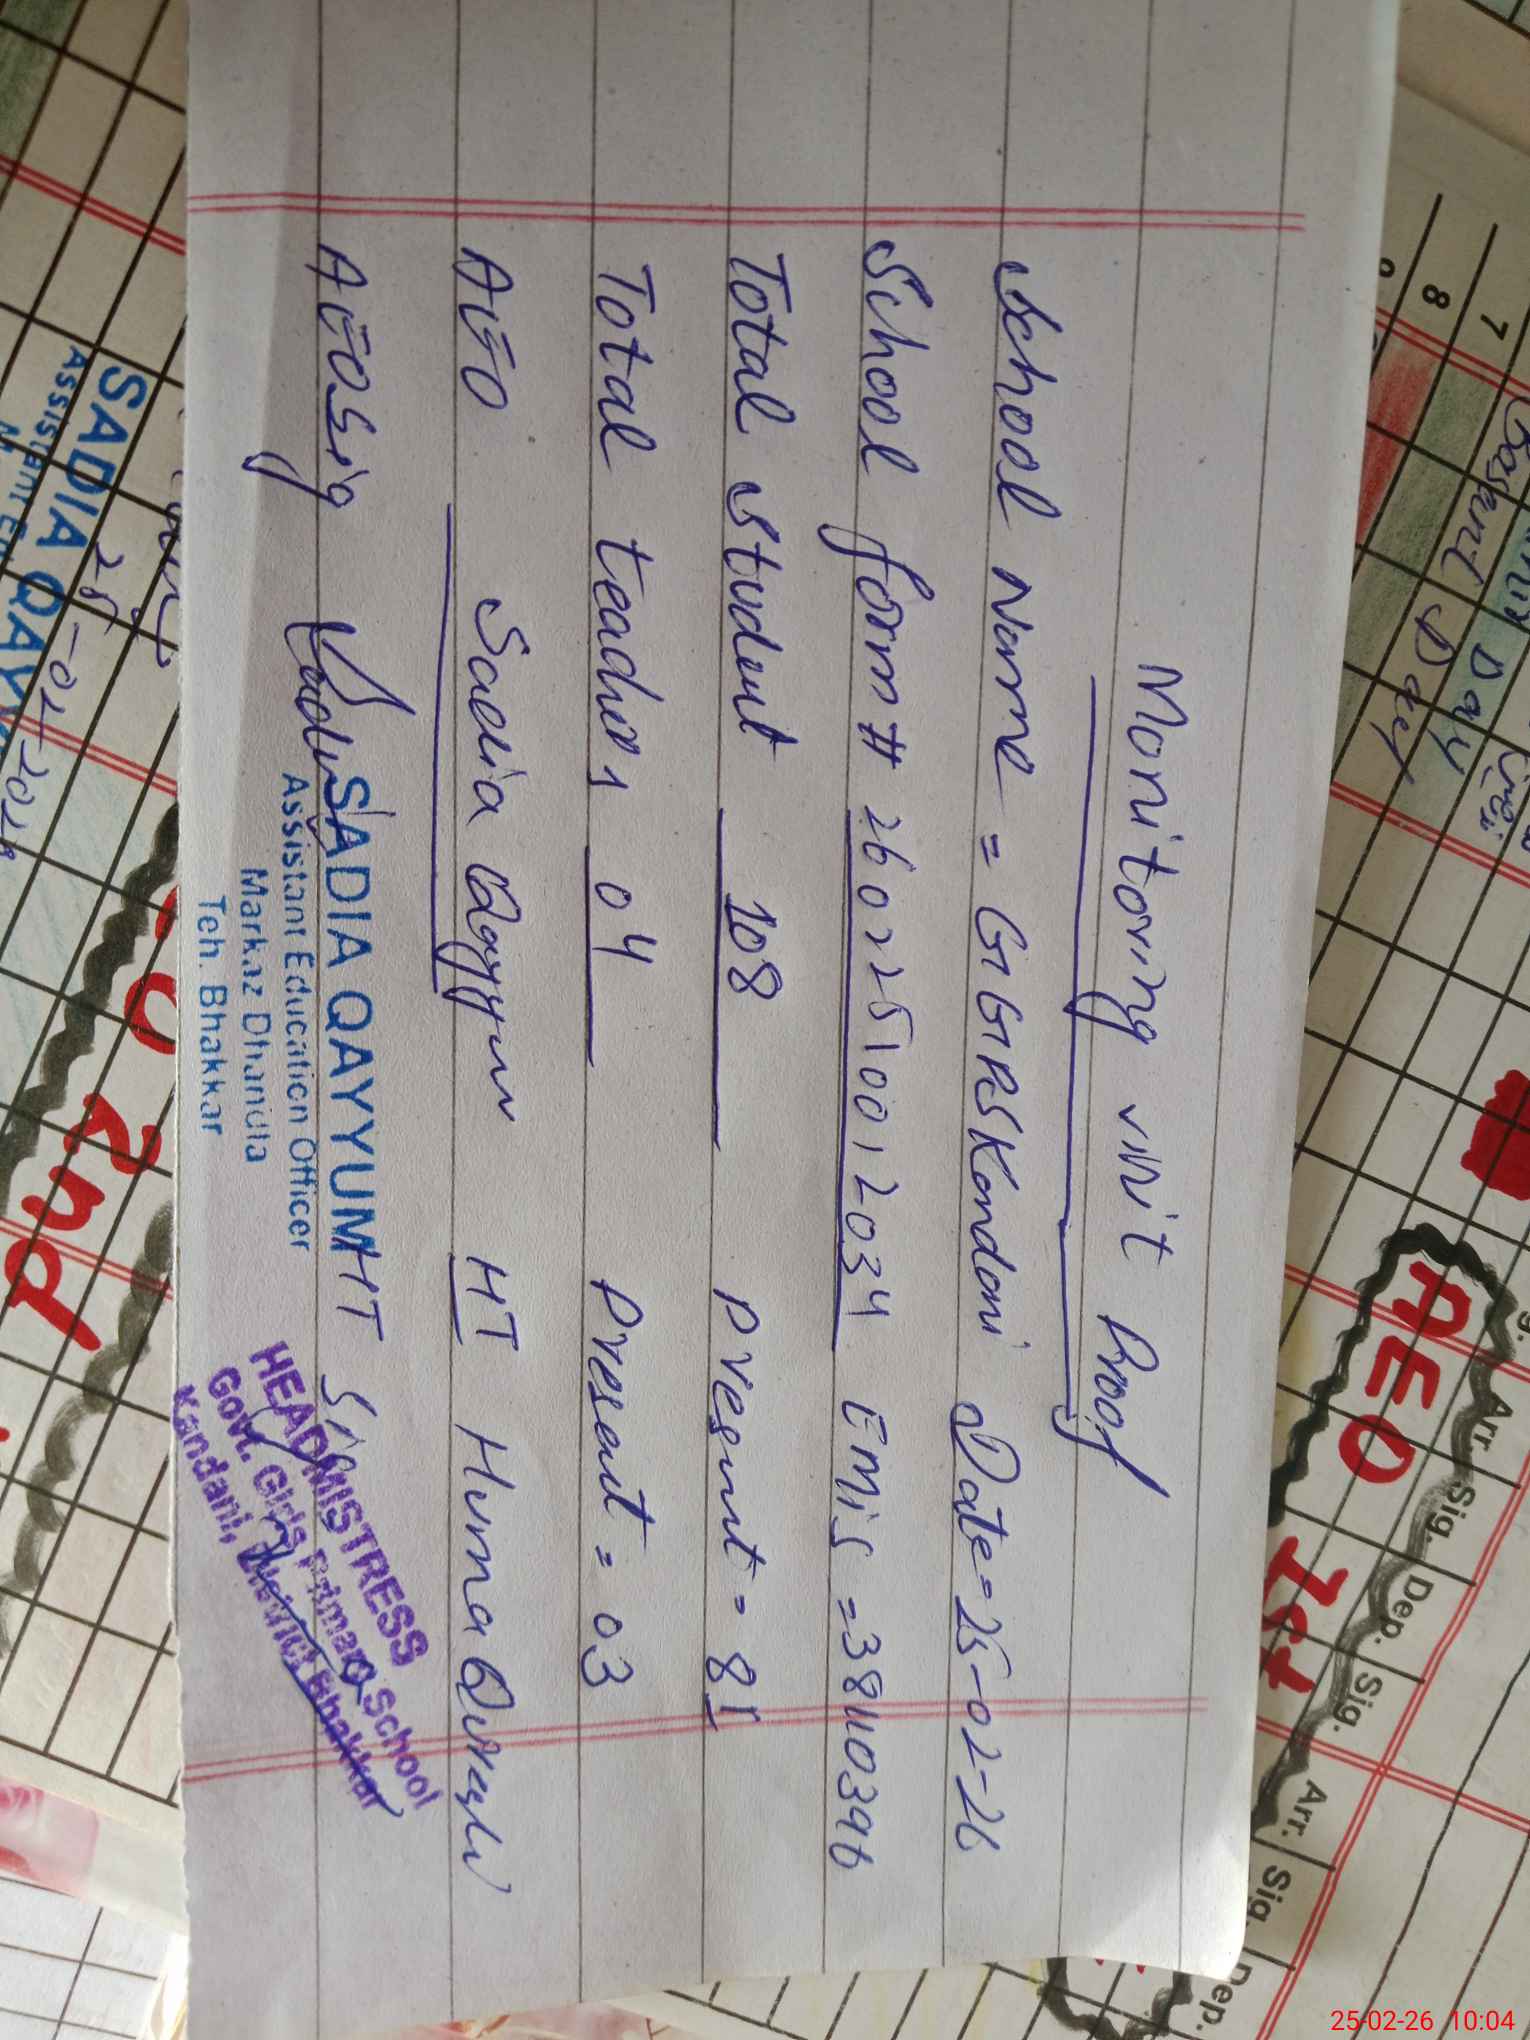 Monitoring visit Proof
School Name = GGPS Kandani Date = 25-02-26
School form # 26022510012034 EMIS = 38110396
Total Student 108 Present = 81
Total teachers 04 Present = 03
AEO Sadia Qayyum HT Huma Qureshi
AEO Sig HT Sig
SADIA QAYYUM
Assistant Education Officer
Markaz Dhandla
Teh. Bhakkar
HEADMISTRESS
Govt. Girls Primary School
Kandani, District Bhakkar
SADIA QAYY
Assistant E
25-02-202
2nd
AEO 1st
7
8
Day
Day
Arr. Sig. Dep. Sig. Arr. Sig. Dep.
25-02-26 10:04